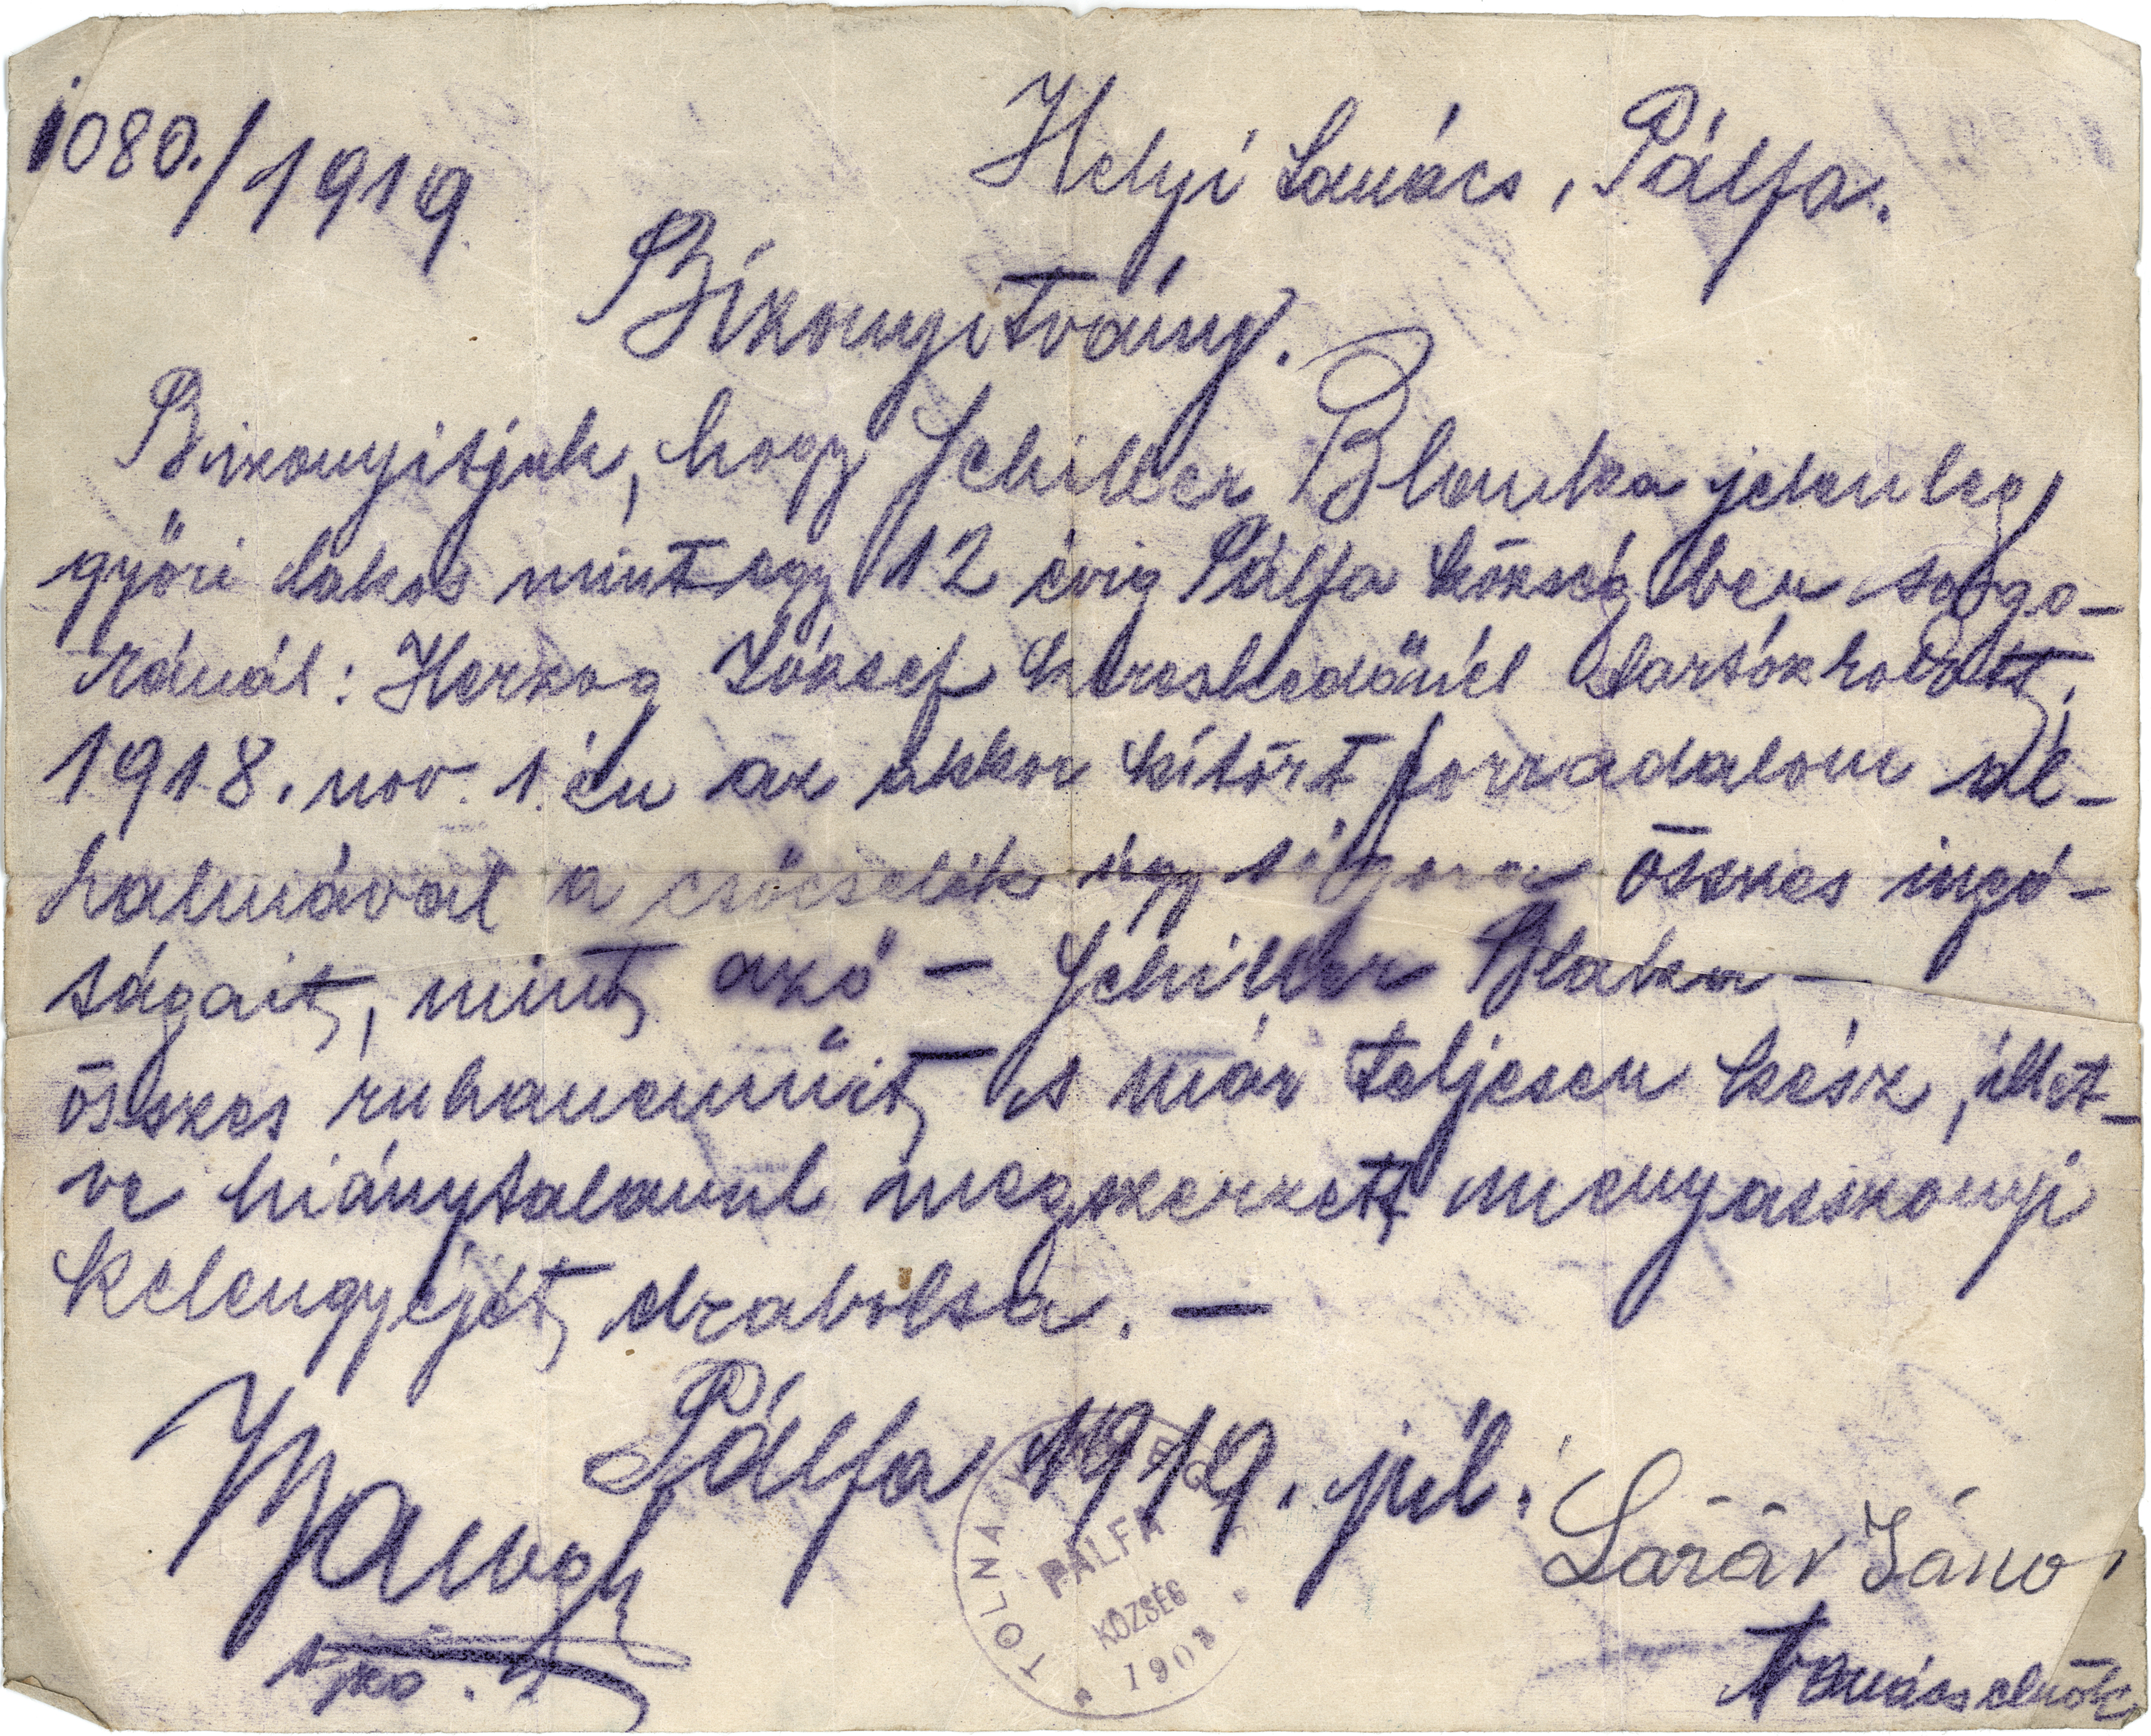 1080./1919.
Helyi Tanács, Pálfa.
Bizonyitvány.
Bizonyitjuk, hogy Schiller Blanka jelenleg
győri lakos mintegy 12 évig Pálfa községben sógo-
ránál: Herzog József kereskedőnél tartózkodott,
1918. nov. 1.én az akkor kitört forradalom al-
kalmával a csőcselék úgy sógora összes ingó-
ságait, mint aző – Schiller Blaka –
összes ruhaneműit – s már teljesen kész, illet-
ve hiánytalanul megszerzett menyasszonyi
kelengyéjét elrabolta. –
Pálfa 1919. júl.
TOLNA VÁRMEGYE
PÁLFA
KÖZSÉG
1908
János
Tanácselnök